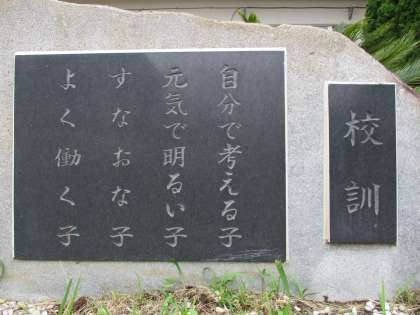 校訓
自分で考える子
元気で明るい子
すなおな子
よく働く子